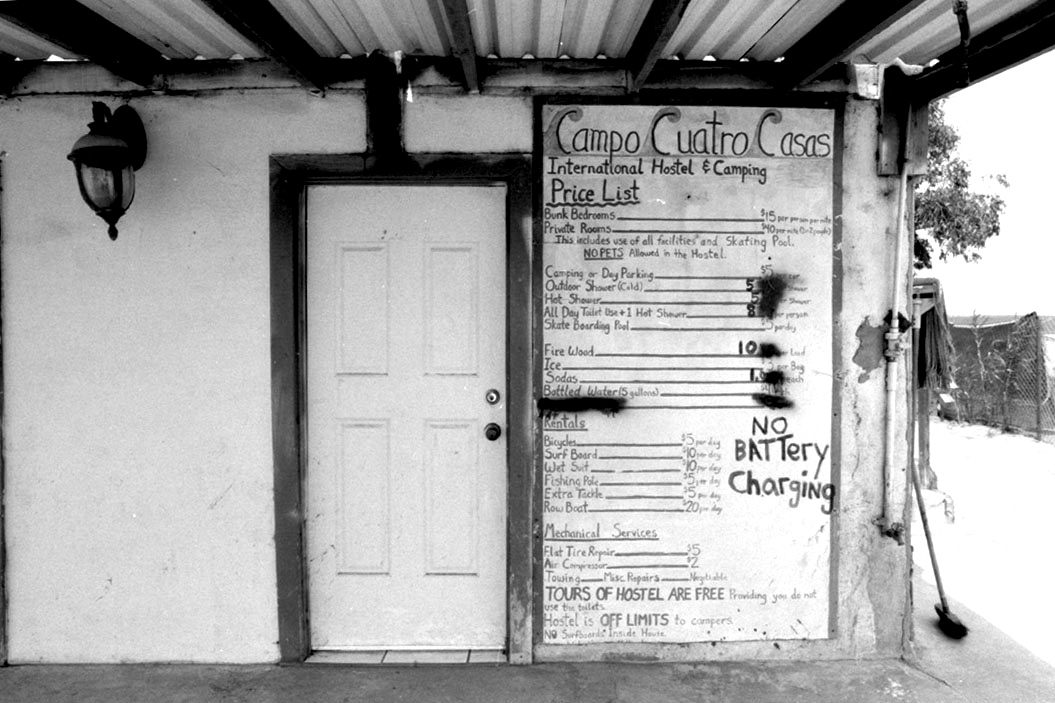 Campo Cuatro Casas
International Hostel & Camping
Price List
Bunk Bedrooms $15 per person per nite
Private Rooms $40 per nite (1-2 people)
This includes use of all facilities and Skating Pool.
NO PETS Allowed in the Hostel.
Camping or Day Parking $5 per car
Outdoor Shower (Cold) 5
Hot Shower 5 Shower
All Day Toilet Use + 1 Hot Shower 8 per person
Skate Boarding Pool $5 per day
Fire Wood 10 per Load
Ice per Bag
Sodas 1. each
Bottled Water (5 gallons)
Rentals
Bicycles $5 per day
Surf Board $10 per day
Wet Suit $10 per day
Fishing Pole $5 per day
Extra Tackle $5 per day
Row Boat $20 per day
NO
BATTery
Charging
Mechanical Services
Flat Tire Repair $5
Air Compressor $2
Towing Misc. Repairs Negotiable
TOURS OF HOSTEL ARE FREE Providing you do not
use the toilets.
Hostel is OFF LIMITS to campers.
NO Surfboards Inside House.